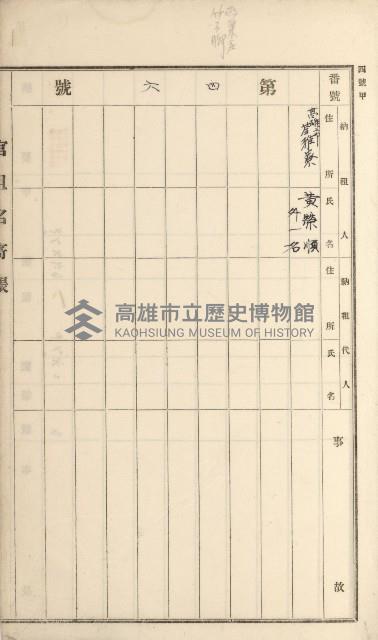 四號甲
番號
第四六號
納租人
住所
氏名
高雄市
苓雅寮
黃榮順
外一名
納租代人
住所
氏名
事故
官租名寄帳
高雄市立歷史博物館
KAOHSIUNG MUSEUM OF HISTORY